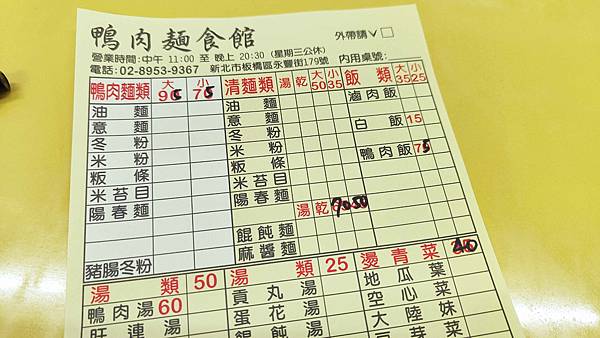 鴨肉麵食館 外帶請✓□
營業時間:中午 11:00 至 晚上 20:30 (星期三公休)
電話:02-8953-9367 新北市板橋區永豐街179號 內用桌號:
鴨肉麵類 大95 小75 清麵類 湯 乾 大50 小35 飯類 大35 小25
油麵 油麵 滷肉飯
意麵 意麵
冬粉 冬粉 白飯 15
米粉 米粉
粄條 粄條 鴨肉飯 75
米苔目 米苔目
陽春麵 陽春麵
湯 乾 70 50
餛飩麵
麻醬麵
豬腸冬粉
湯類 50 湯類 25 燙青菜 40
鴨肉湯 60 貢丸湯 地瓜葉
旺連湯 蛋花湯 空心菜
餛飩湯 大陸妹
豆芽菜